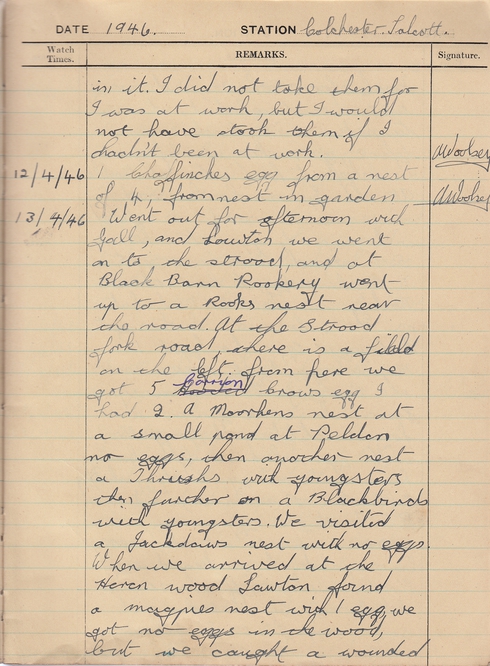 DATE 1946. STATION Colchester. Salcott.
Watch Times. REMARKS. Signature.
in it. I did not take them for
I was at work, but I would
not have took them if I
hadn't been at work. AWoolsey
12/4/46 1 Chaffinches egg from a nest
of 4, from nest in garden, AWoolsey
13/4/46 Went out for afternoon with
Gall, and Lawton we went
on to the strood, and at
Black Barn Rookery went
up to a Rooks nest near
the road. At the Strood
fork road, there is a field
on the left. from here we
got 5 Carrion crows egg I
had 2. A Moorhens nest at
a small pond at Peldon
no eggs, then another nest
a Thrushs with youngsters
then further on a Blackbirds
with youngsters. We visited
a Jackdaws nest with no eggs.
When we arrived at the
Heron wood Lawton found
a magpies nest with 1 egg, we
got no eggs in the wood,
but we caught a wounded